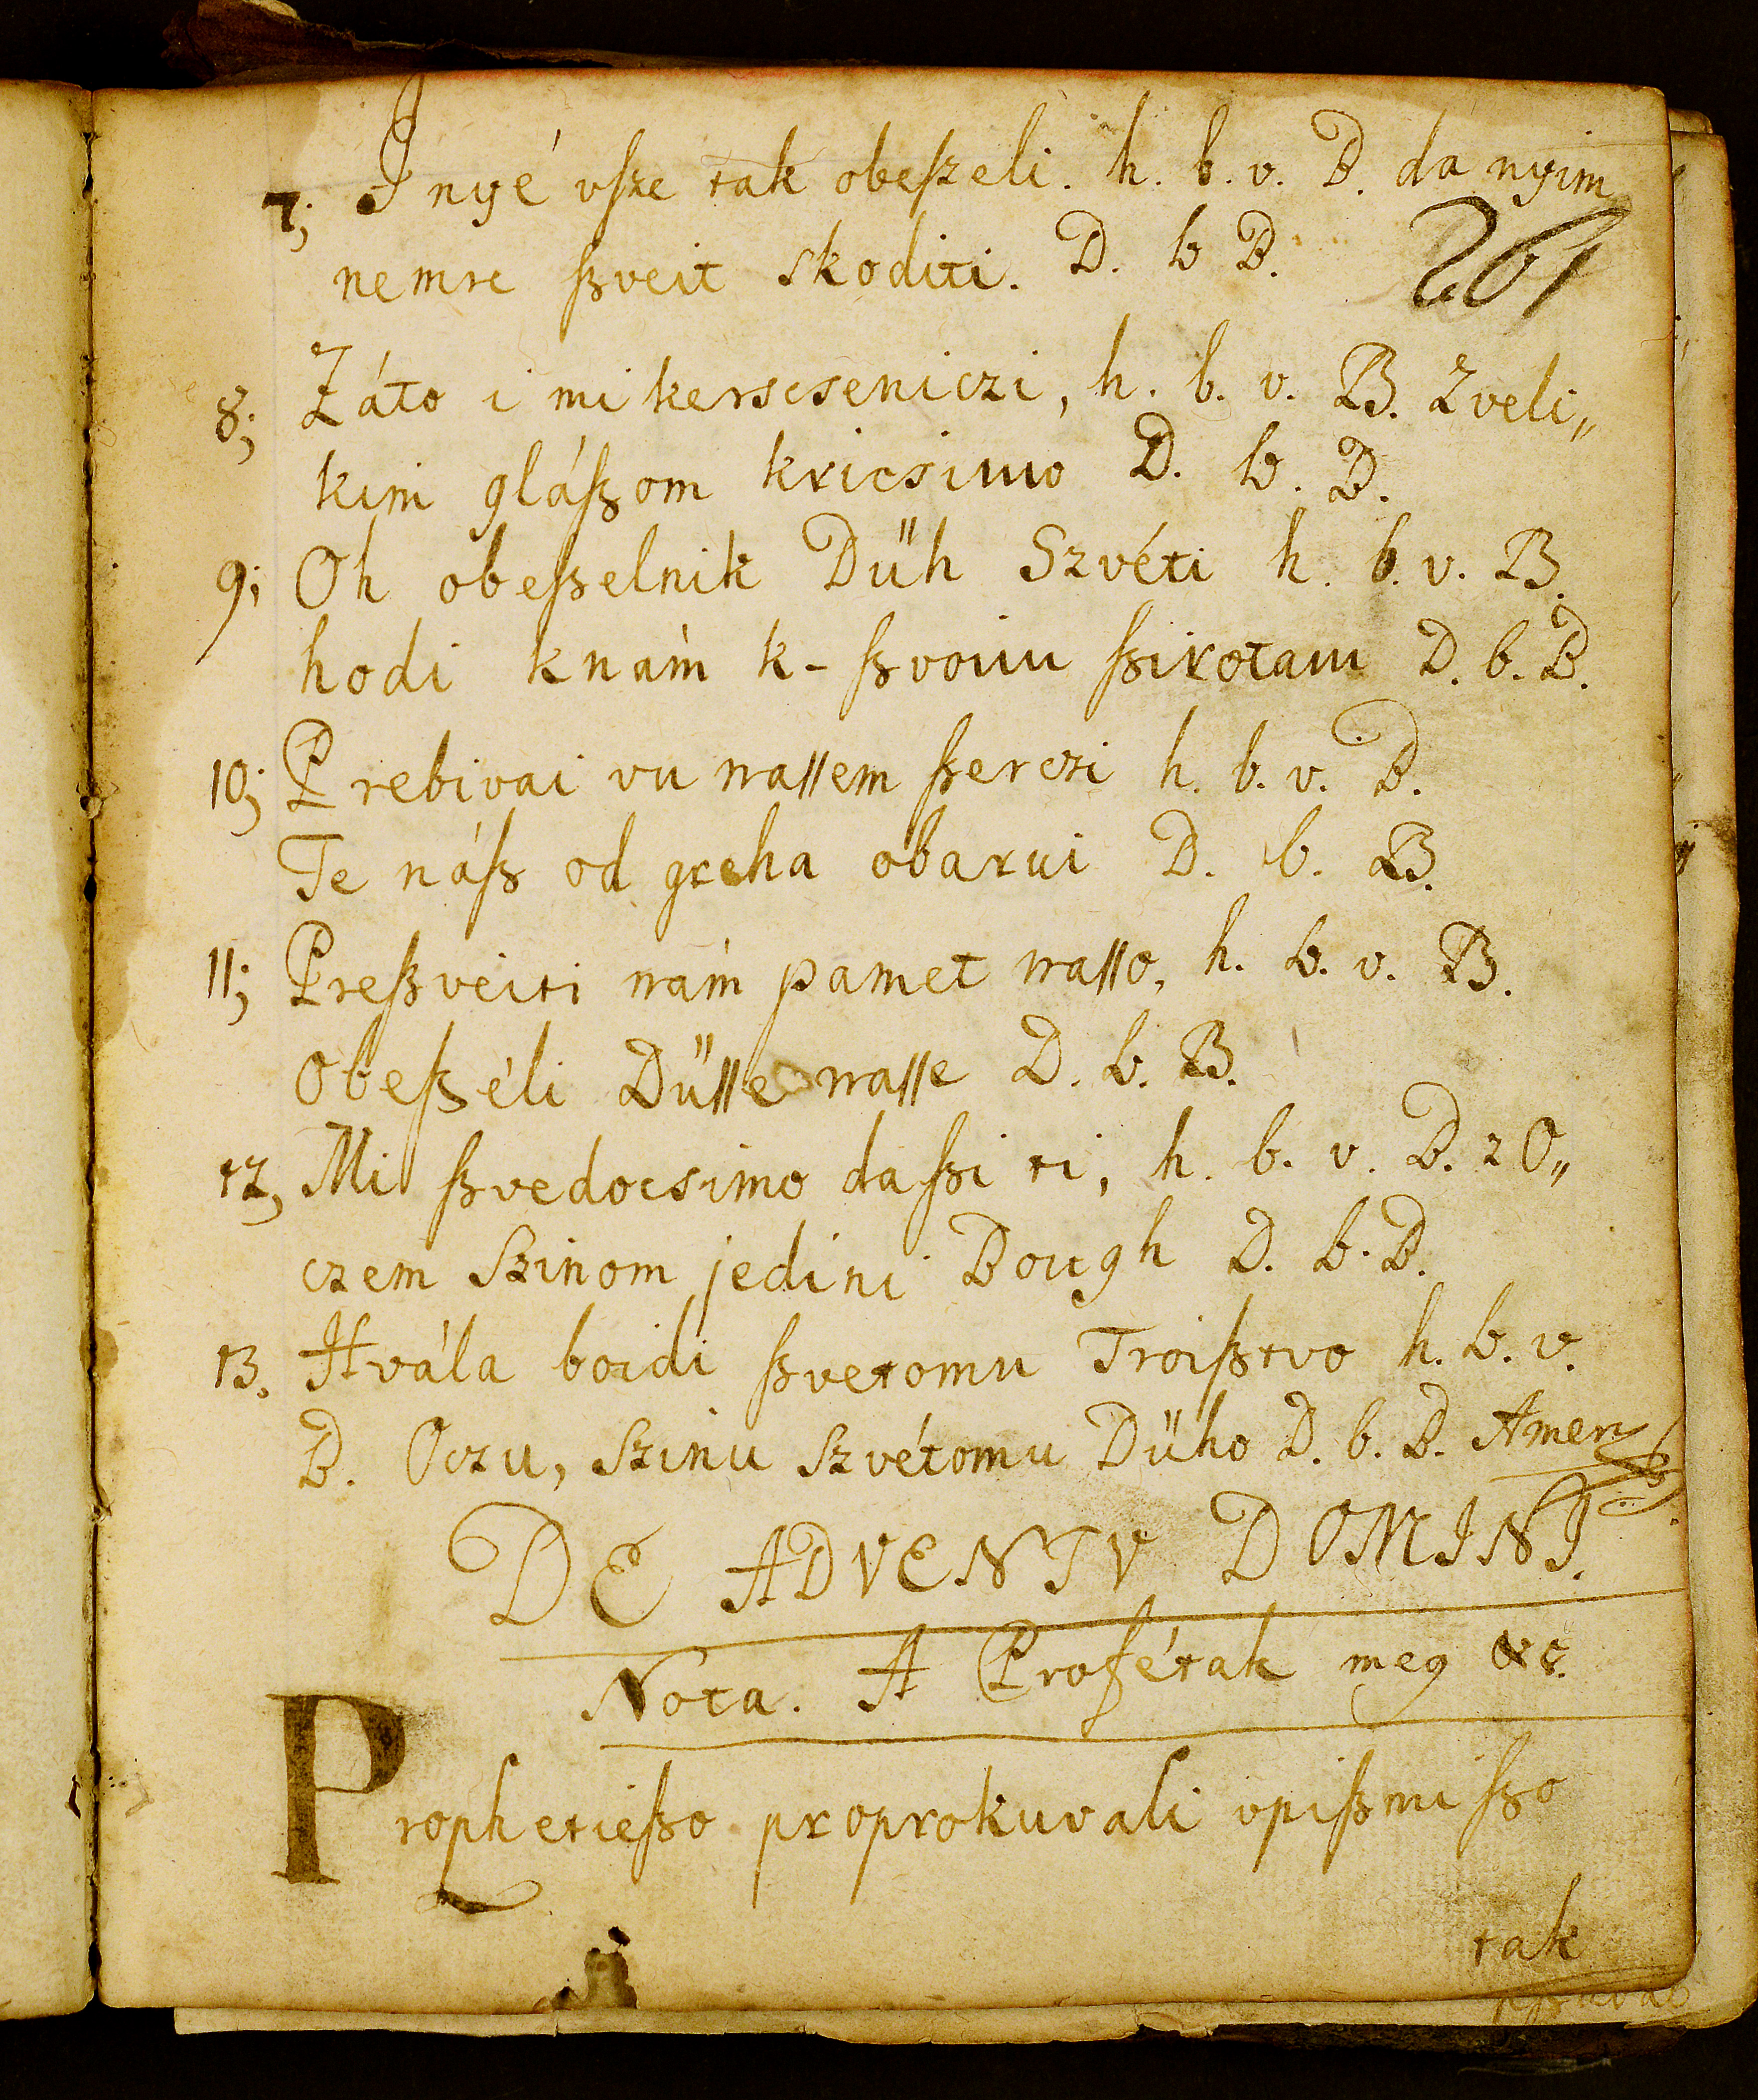 7; I nyé vsze tak obeſzeli. h. b. v. B. da nyim
nemre ſzveit skoditi. D. b B.
261
8; Záto i mi kerscseniczi, h. b. v. B. Zveli„
kim gláſzom kricsimo D. b. B.
9; Oh obeſzelnik Dűh Szvéti h. b. v. B.
hodi knám k-ſzvoim ſzirotam D. b. B.
10; Prebivai vu naſſem ſzerczi h. b. v. B.
Te náſz od greha obarui D. b. B.
11; Preſzveiti nám pamet naſſo, h. b. v. B.
Obeſzéli Dűſſe naſſe D. b. B.
12, Mi ſzvedocsimo daſzi ti, h. b. v. B. z O„
czem Szinom jedini Bough D. b. B.
13. Hvála boidi ſzvetomu Troiſztvo h. b. v.
B. Oczu, Szinu Szvétomu Dűho D. b. B. Amen
DE ADVENTV DOMINI.
Nota. A Profétak meg &c.
Prophetieſzo proprokuvali vpiſzmi ſzo
tak